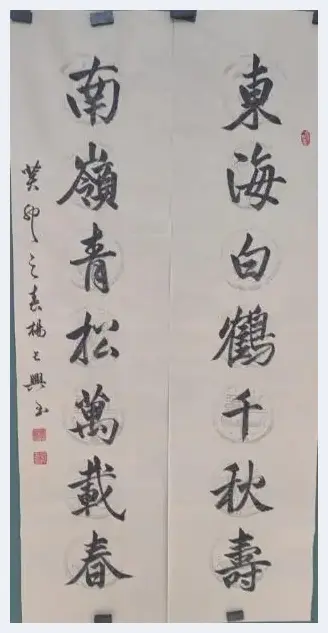 東海白鶴千秋壽
南嶺青松萬載春
癸卯之春楊士興书